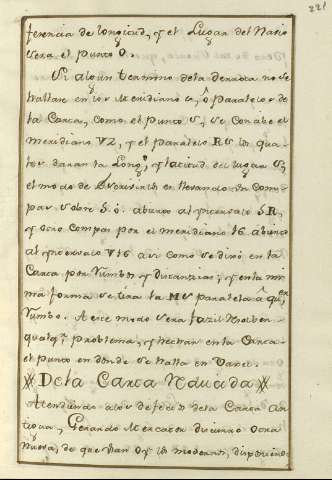 221
ferencia de longitud, y el Lugar del Navio
sera el punto O.
Si algun termino dela derrota no se
hallare en los Meridianos, ô paralelos de
la Carta, como el punto S, se
Meridiano VZ, y el paralelo RS los qua
les daran la Long.ᵈ, y latitud del lugar S,
el modo de es llevando un Com-
pas sobre S. ô. abierto al intervalo SR,
y otro Compas por el meridiano 16 abierto
al intervalo V16 asi como se dirô en la
Carta por Rumbos y Distancias, y en la mis
ma forma se tira la MV paralela â qu.ᵉʳ
Rumbo. A este modo sera facil resolver
qualq.ʳ problema, y hechar en la Carta
el punto en donde se halla en Vaxel.
Dela Carta Reducida
Atendiendo alos defectos dela Carta an
tigua, Gerardo Mercator discurrio otra
nueva, de que han los modernos, disponiendo